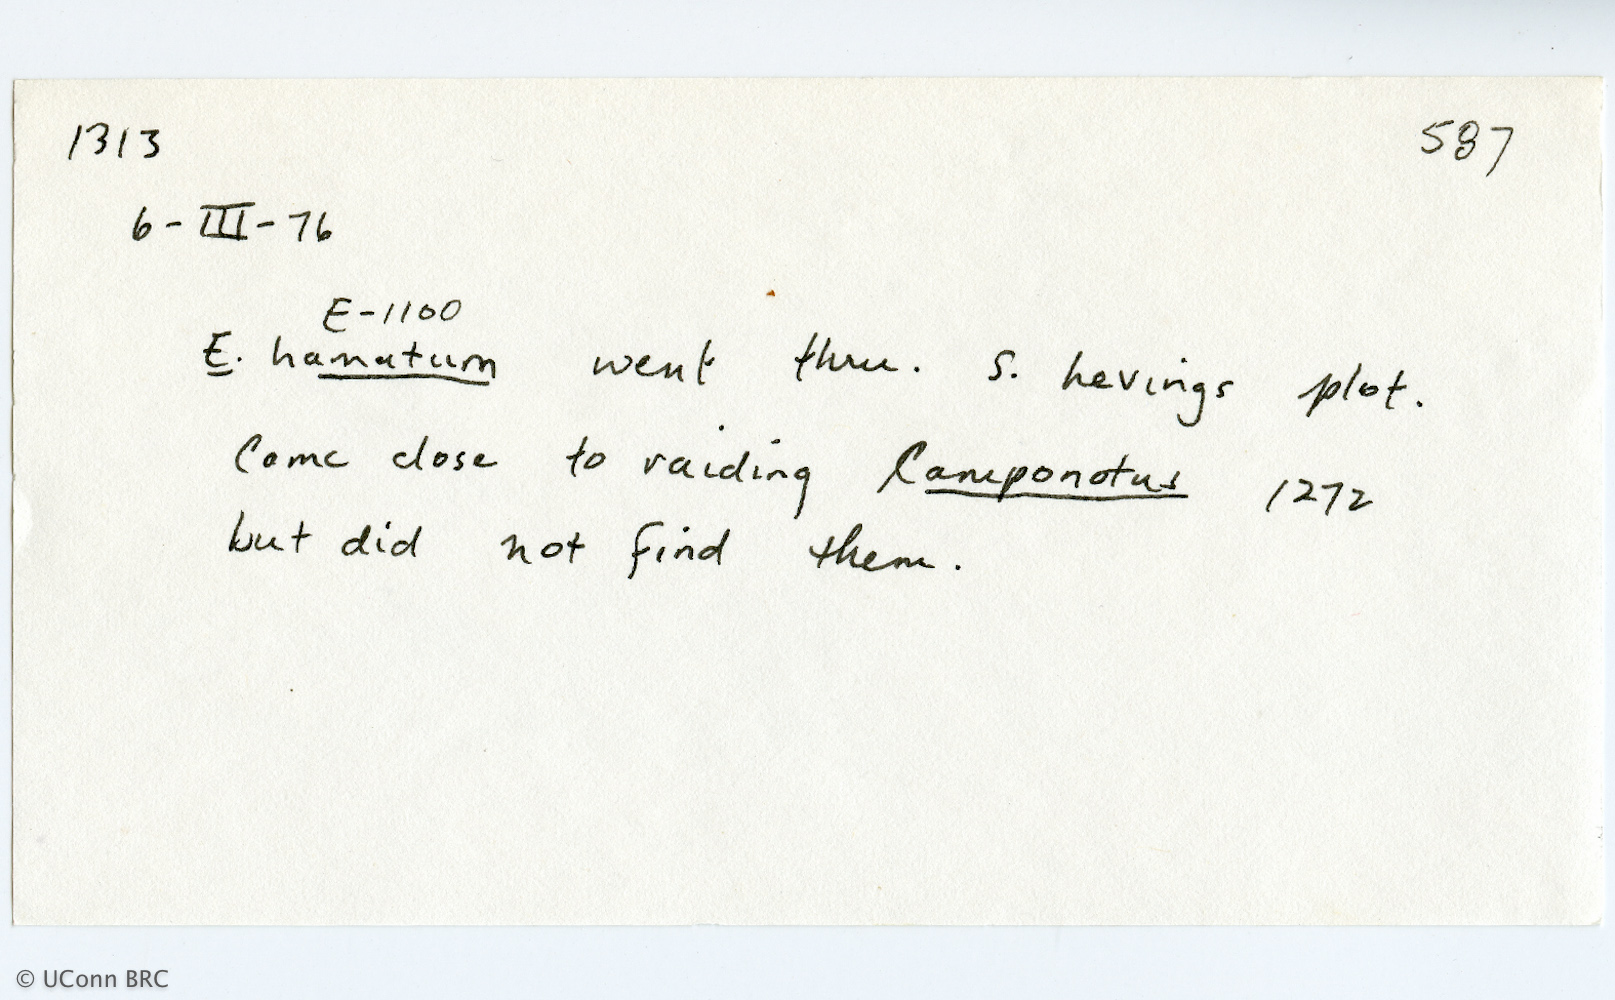 1313 587
6-III-76
E-1100
E. hamatum went thru. S. hevings plot.
Came close to raiding Camponotus 1272
but did not find them.
© UConn BRC